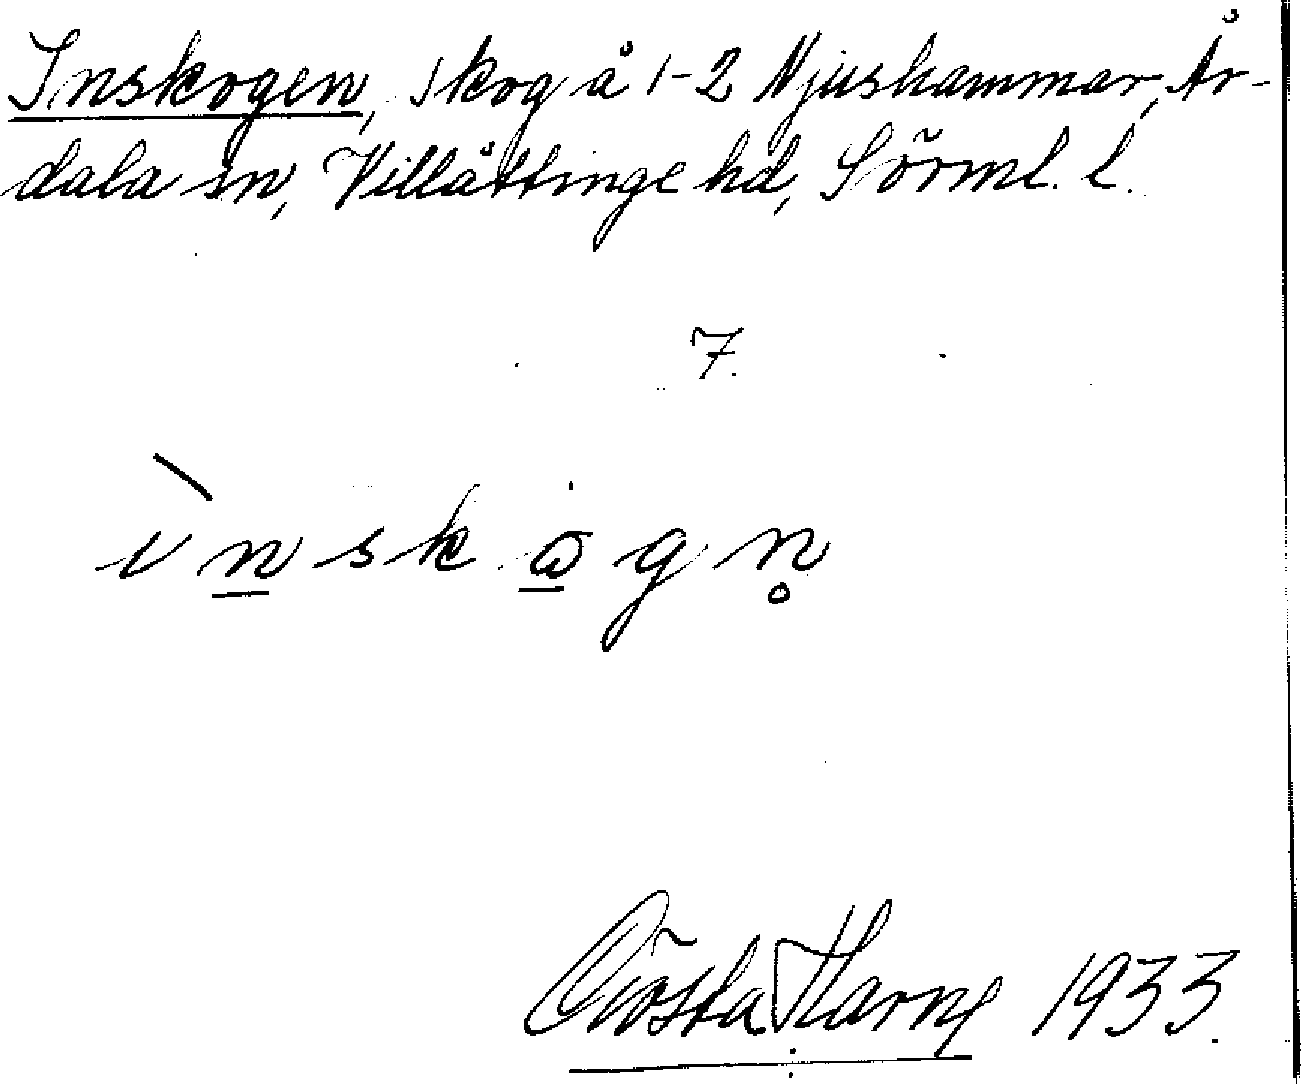 Inskogen, skog å 1-2 Njushammar, År-
dala sn, Villåttinge hd, Sörml. l.
7.
ìn̲skɷ̲gn̥
Gösta Harne 1933.